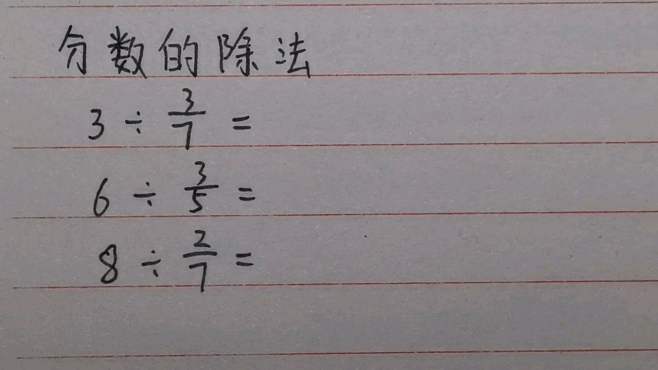 分数的除法
3 ÷ 3/7 =
6 ÷ 3/5 =
8 ÷ 2/7 =